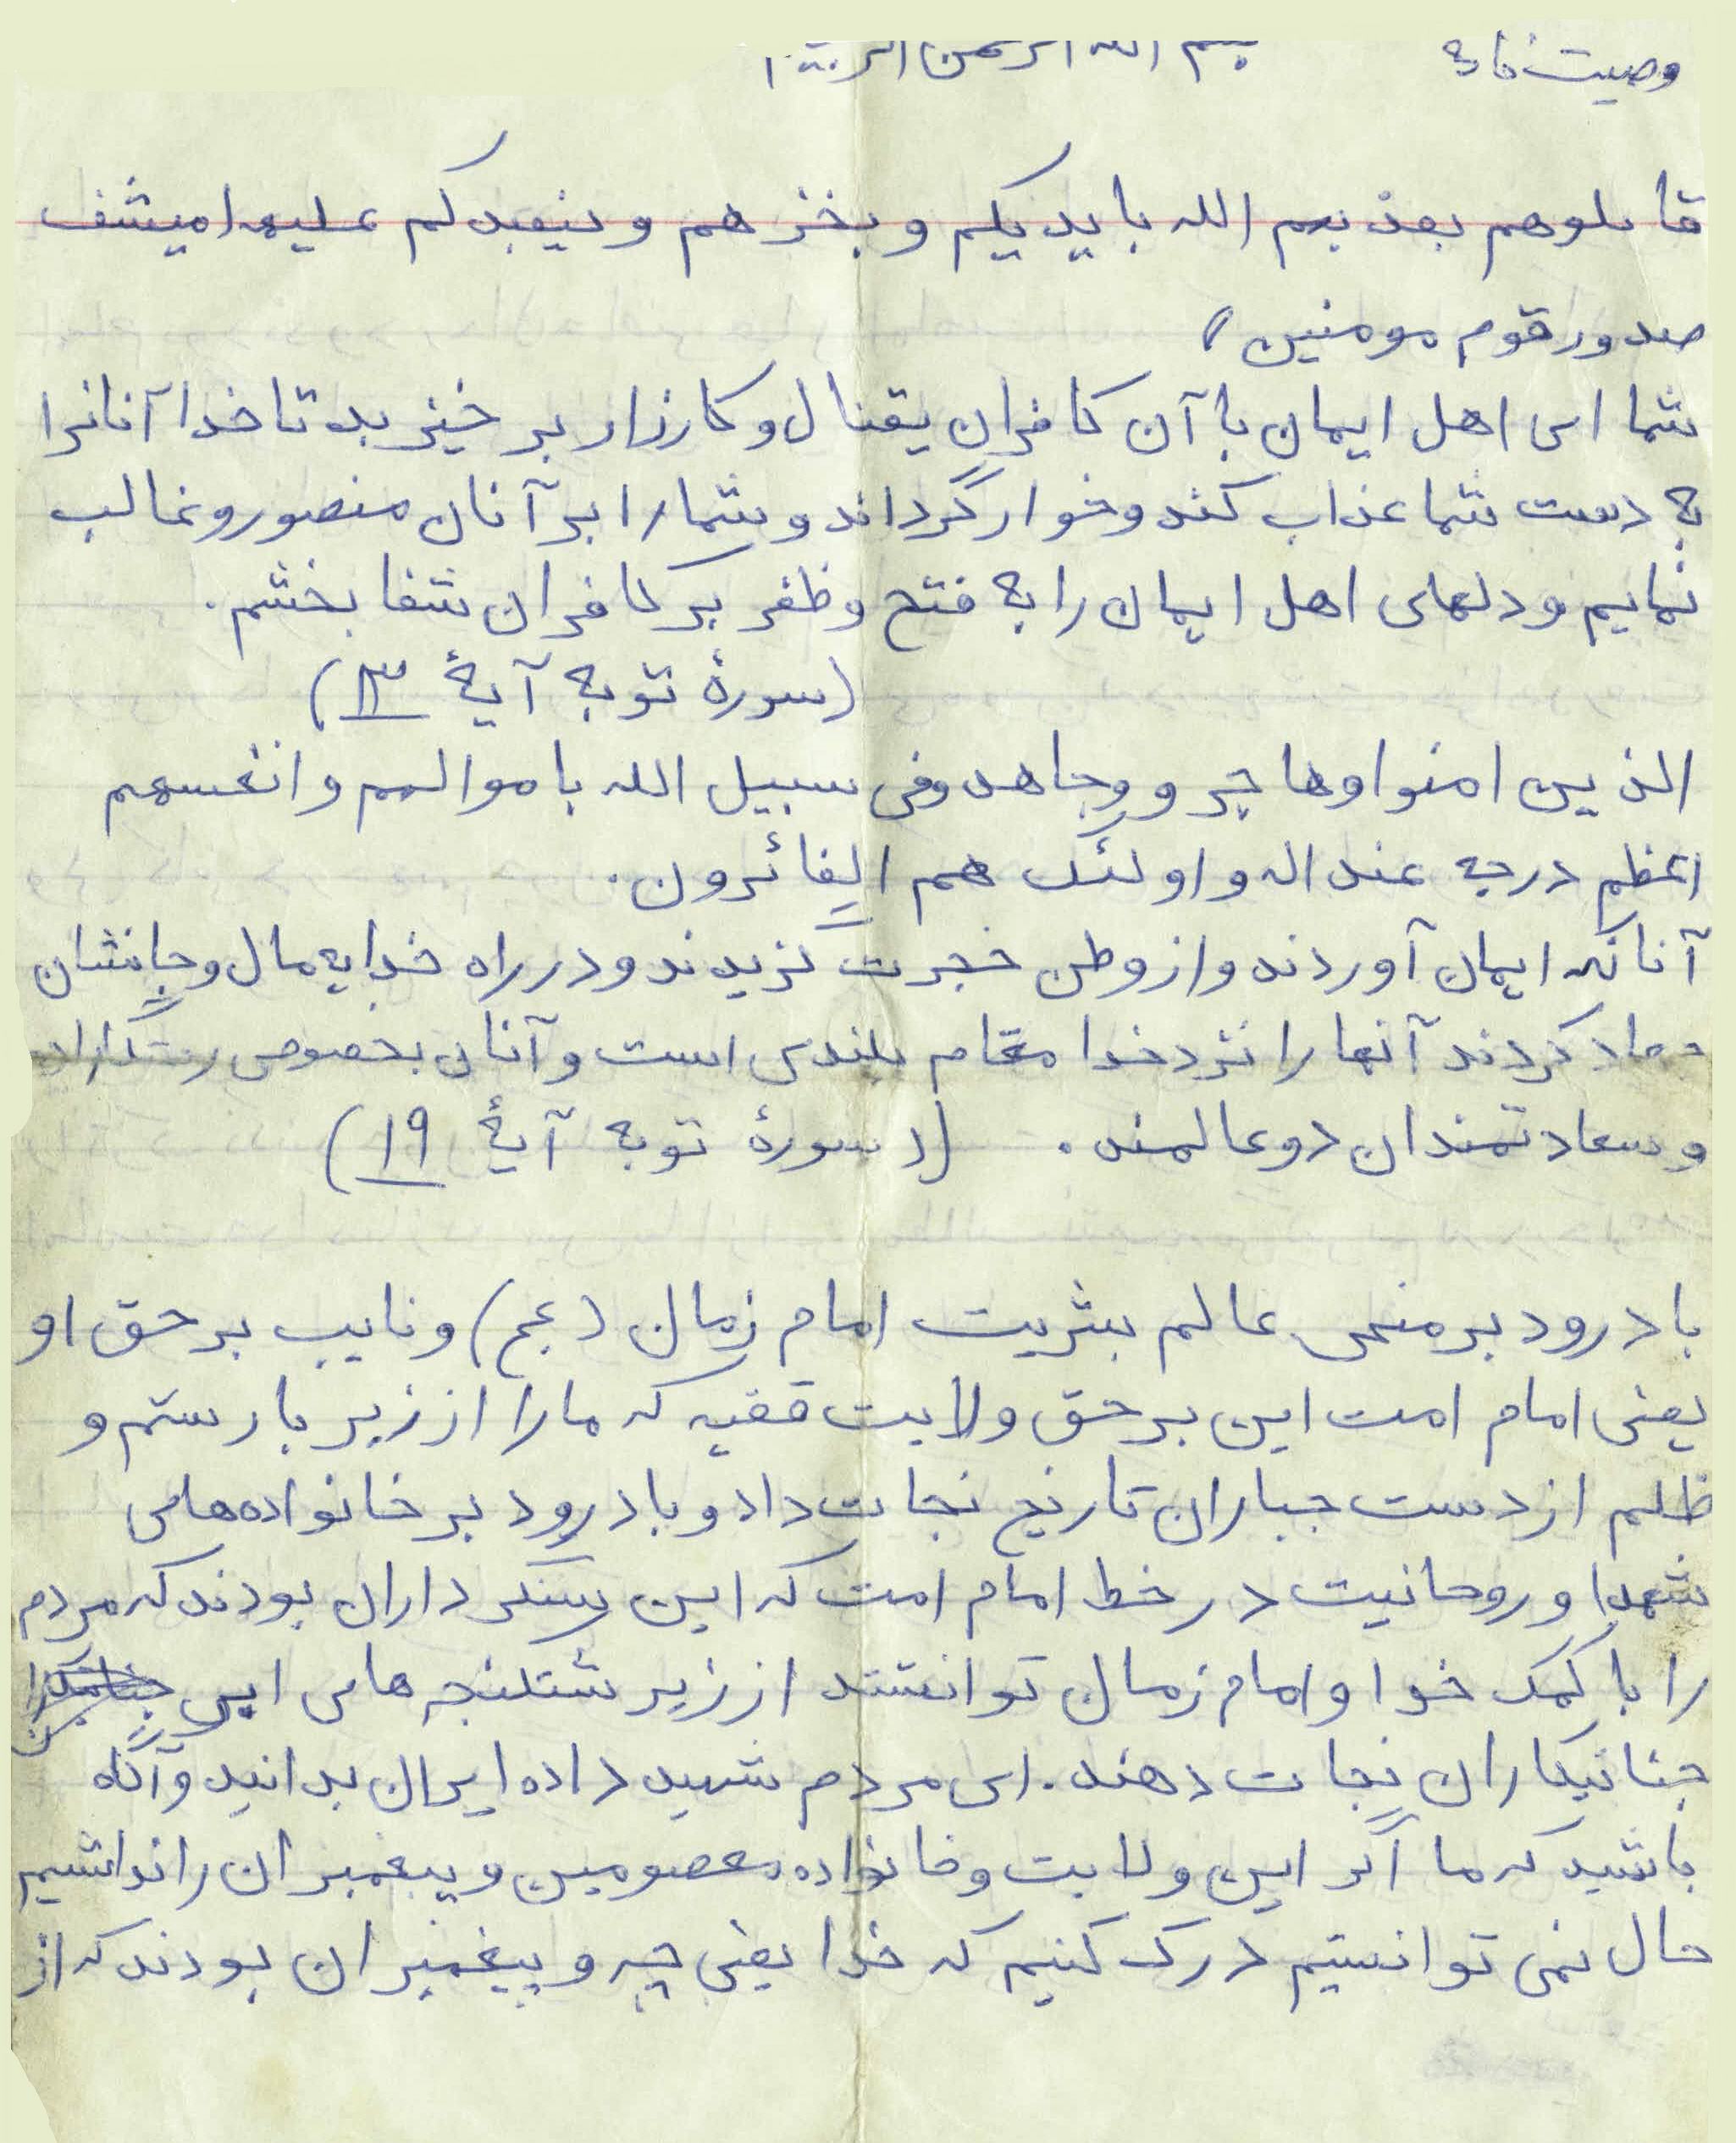 وصیت نامه بسم الله الرحمن الرحیم
قاتلوهم بعذبهم الله بایدیکم و بخزهم و ینصبدکم علیهم امیشف
صدور قوم مومنین
شما ای اهل ایمان با آن کافران یقتال و کارزار بر خیزید تا خدا آنانرا
به دست شما عذاب کند و خوار گرداند و شما را بر آنان منصور و غالب
نمایم و دلهای اهل ایمان را به فتح و ظفر بر کافران شفا بخشم.
(سورهٔ توبه آیهٔ ۱۳)
الذین امنوا وها جر و وجاهد وفی سبیل الله باموالهم و انفسهم
اعظم درجه عند اله و اولئک هم الفائرون.
آنانکه ایمان آوردند و از وطن خجرت گزیدند و در راه خدا بعمال و جانشان
جهاد کردند آنها را نزد خدا مقام بلندی است و آنان بخصوص رستگاران
و سعادتمندان دو عالمند. (سورهٔ توبه آیهٔ ۱۹)
با درود بر منجی عالم بشریت امام زمان (عج) و نایب بر حق او
یعنی امام امت این بر حق ولایت فقیه که ما را از زیر بار ستم و
ظلم از دست جباران تاریخ نجات داد و با درود بر خانواده‌های
شهدا و روحانیت در خط امام امت که این سنگر داران بودند که مردم
را با کمک خدا و امام زمان توانستند از زیر شتکنجه های این
جنایتکاران نجات دهند. ای مردم شهید داده ایران بدانید و آگاه
باشید که ما اگر این ولایت و خانواده معصومین و پیغمبران را نداشتیم
حال نمی توانستیم درک کنیم که خدا یعنی چه و پیغمبران بودند که از